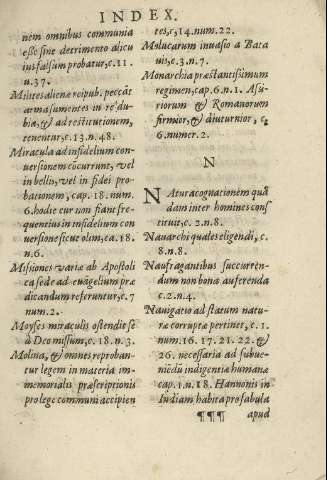 INDEX.
nem omnibus communia
esse sine detrimento alicu
ius falsum probatur, c. 11.
n. 37.
Milites alienæ reipub. peccāt
arma sumentes in re du-
bia, & ad restitutionem,
tenentur, c. 13. n. 48.
Miracula ad infidelium con-
uersionem cōcurrunt, vel
in bellis, vel in fidei pro-
bationem, cap. 18. num.
6. hodie cur non fiant fre-
quentius in infidelium con
uersione sicut olim, ca. 18.
n. 6.
Missiones variæ ab Apostoli
ca sede ad euāgelium præ
dicandum referuntur, c. 7
num. 2.
Moyses miraculis ostendit sē
à Deo missum, c. 18. n. 3.
Molina, & omnes reproban-
tur legem in materia im-
memorialis præscriptionis
pro lege communi accipien
tes, c, 14. num. 22.
Molucarum inuasio à Bata
uis, c. 3. n. 7.
Monarchia præstantissimum
regimen, cap. 6. n. 1. Assi-
riorum & Romanorum
firmior, & diuturnior, c,
6. numer. 2.
N
NAtura cognationem quā
dam inter homines cons
tituit, c. 2. n. 8.
Nauarchi quales eligendi, c.
8. n. 8.
Naufragantibus succurren-
dum non bona auferenda
c. 2. n. 4.
Nauigatio ad statum natu-
ræ corruptæ pertinet, c. 1.
num. 16. 17. 21. 22. &
26. necessaria ad subue-
niēdū indigentiæ humanæ
cap. 1. n. 18. Hannonis in
Indiam habita pro fabula
¶¶¶ apud